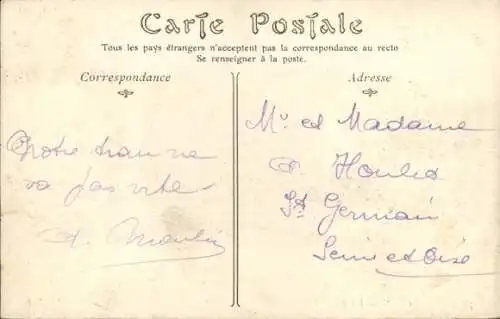 Carte Postale
Tous les pays étrangers n'acceptent pas la correspondance au recto
Se renseigner à la poste.
Correspondance
Notre train ne
va pas vite
Adresse
Mr et Madame
St Germain
Seine et Oise